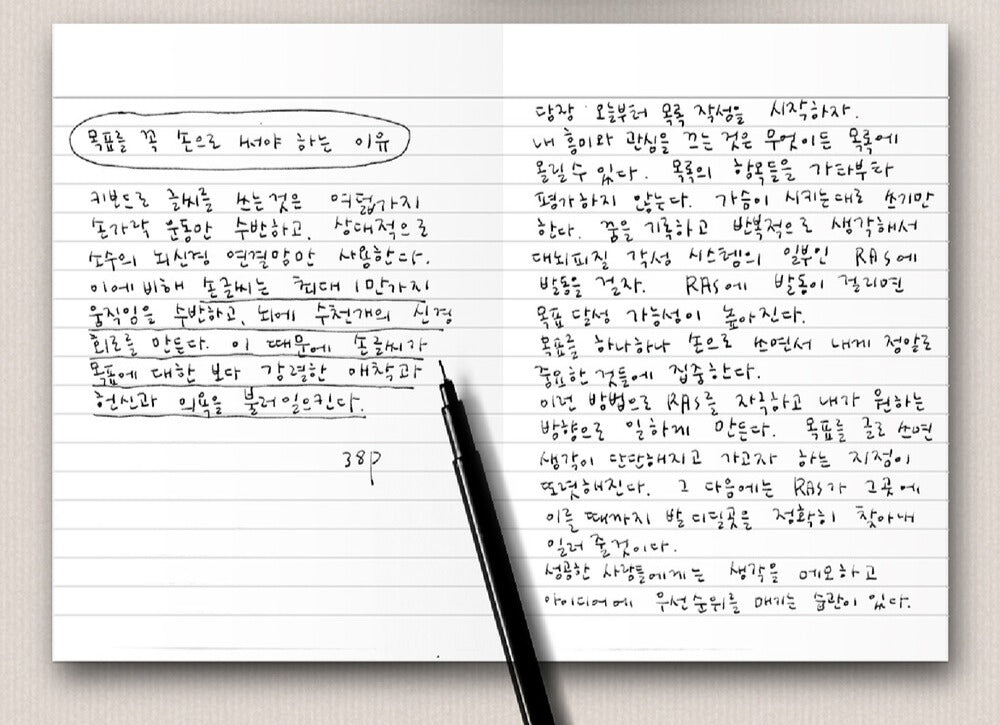 목표를 꼭 손으로 써야 하는 이유
키보드로 글씨를 쓰는것은 여덟가지
손가락 운동만 수반하고, 상대적으로
소수의 뇌신경 연결망만 사용한다.
이에 비해 손글씨는 최대 1만가지
움직임을 수반하고, 뇌에 수천개의 신경
회로를 만든다. 이 때문에 손글씨가
목표에 대한 보다 강렬한 애착과
헌신과 의욕을 불러일으킨다.
38P
당장 오늘부터 목록 작성을 시작하자.
내 흥미와 관심을 끄는 것은 무엇이든 목록에
올릴 수 있다. 목록의 항목들을 가타부타
평가하지 않는다. 가슴이 시키는대로 쓰기만
한다. 꿈을 기록하고 반복적으로 생각해서
대뇌피질 각성 시스템의 일부인 RAS에
발동을 걸자. RAS에 발동이 걸리면
목표 달성 가능성이 높아진다.
목표를 하나하나 손으로 쓰면서 내게 정말로
중요한 것들에 집중한다.
이런 방법으로 RAS를 자극하고 내가 원하는
방향으로 일하게 만든다. 목표를 글로 쓰면
생각이 단단해지고 가고자 하는 지점이
뚜렷해진다. 그 다음에는 RAS가 그곳에
이를 때까지 발 디딜곳을 정확히 찾아내
일러 줄것이다.
성공한 사람들에게는 생각을 메모하고
아이디어에 우선순위를 매기는 습관이 있다.